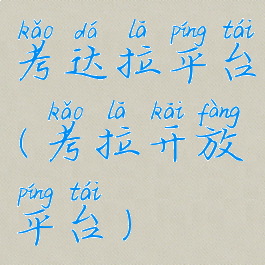 kǎo dá lā píng tái
考达拉平台
kǎo lā kāi fàng
(考拉开放
píng tái
平台)